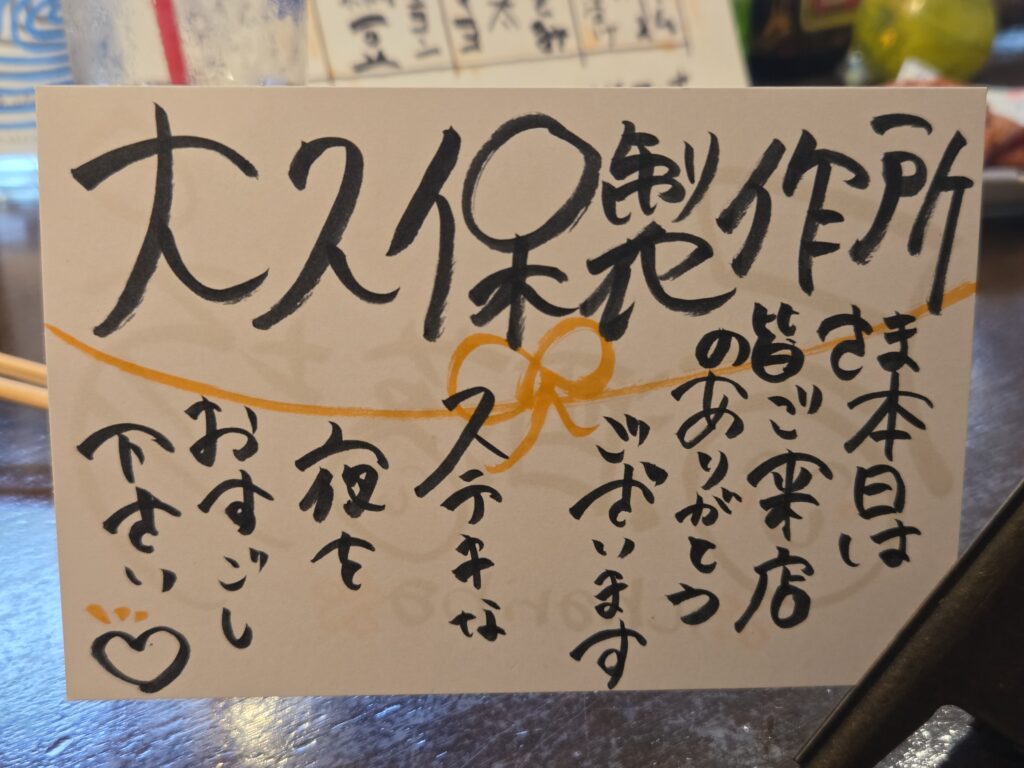 大久保製作所
の皆さま
本日は
ご来店
ありがとう
ございます
ステキな
夜を
おすごし
下さい♡